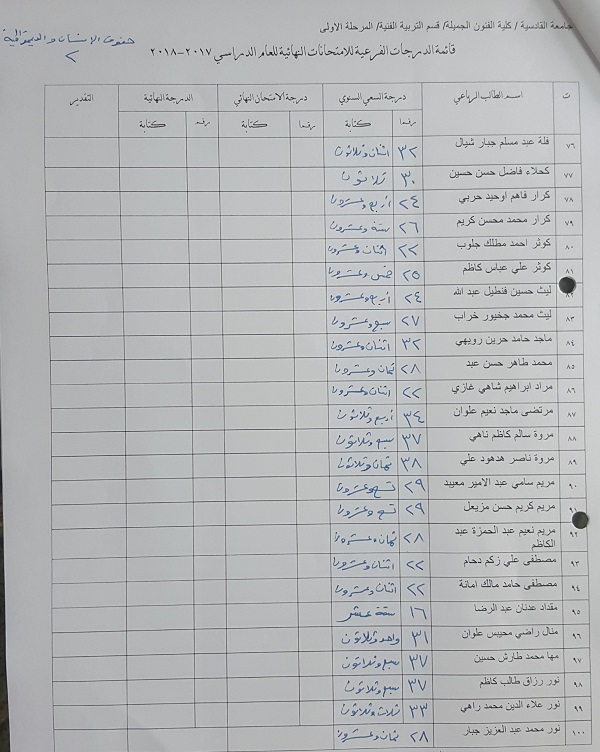 جامعة القادسية / كلية الفنون الجميلة/ قسم التربية الفنية/ المرحلة الاولى
حقوق الإنسان والديمقراطية
٢
قائمة الدرجات الفرعية للامتحانات النهائية للعام الدراسي ٢٠١٧-٢٠١٨
ت اسم الطالب الرباعي درجة السعي السنوي درجة الامتحان النهائي الدرجة النهائية التقدير
رقما كتابة رقما كتابة رقما كتابة
٧٦ فلة عبد مسلم جبار شيال ٣٢ اثنان وثلاثون
٧٧ كحلاء فاضل حسن حسين ٣٠ ثلاثون
٧٨ كرار فاهم اوحيد حربي ٢٤ أربع وعشرون
٧٩ كرار محمد محسن كريم ٢٦ ستة وعشرون
٨٠ كوثر احمد مطلك جلوب ٢٢ اثنان وعشرون
٨١ كوثر علي عباس كاظم ٢٥ خمس وعشرون
٨٢ ليث حسين فنطيل عبد الله ٢٤ أربع وعشرون
٨٣ ليث محمد جخيور خراب ٢٧ سبع وعشرون
٨٤ ماجد حامد حرين رويهي ٣٢ اثنان وعشرون
٨٥ محمد طاهر حسن عبد ٢٨ ثمان وعشرون
٨٦ مراد ابراهيم شاهي غازي ٢٢ اثنان وعشرون
٨٧ مرتضى ماجد نعيم علوان ٣٤ أربع وثلاثون
٨٨ مروة سالم كاظم ناهي ٣٧ سبع وثلاثون
٨٩ مروة ناصر هدهود علي ٣٨ ثمان وثلاثون
٩٠ مريم سامي عبد الامير معيبد ٢٩ تسع وعشرون
٩١ مريم كريم حسن مزيعل ٢٩ تسع وعشرون
٩٢ مريم نعيم عبد الحمزة عبد الكاظم ٢٨ ثمان وعشرون
٩٣ مصطفى علي زكم دحام ٢٢ اثنان وعشرون
٩٤ مصطفى حامد مالك امانة ٢٢ اثنان وعشرون
٩٥ مقداد عدنان عبد الرضا ١٦ ستة عشر
٩٦ منال راضي محيبس علوان ٣١ واحد وثلاثون
٩٧ مها محمد طارش حسين ٣٧ سبع وثلاثون
٩٨ نور رزاق طالب كاظم ٣٧ سبع وثلاثون
٩٩ نور علاء الدين محمد راهي ٣٣ ثلاث وثلاثون
١٠٠ نور محمد عبد العزيز جبار ٢٨ ثمان وعشرون